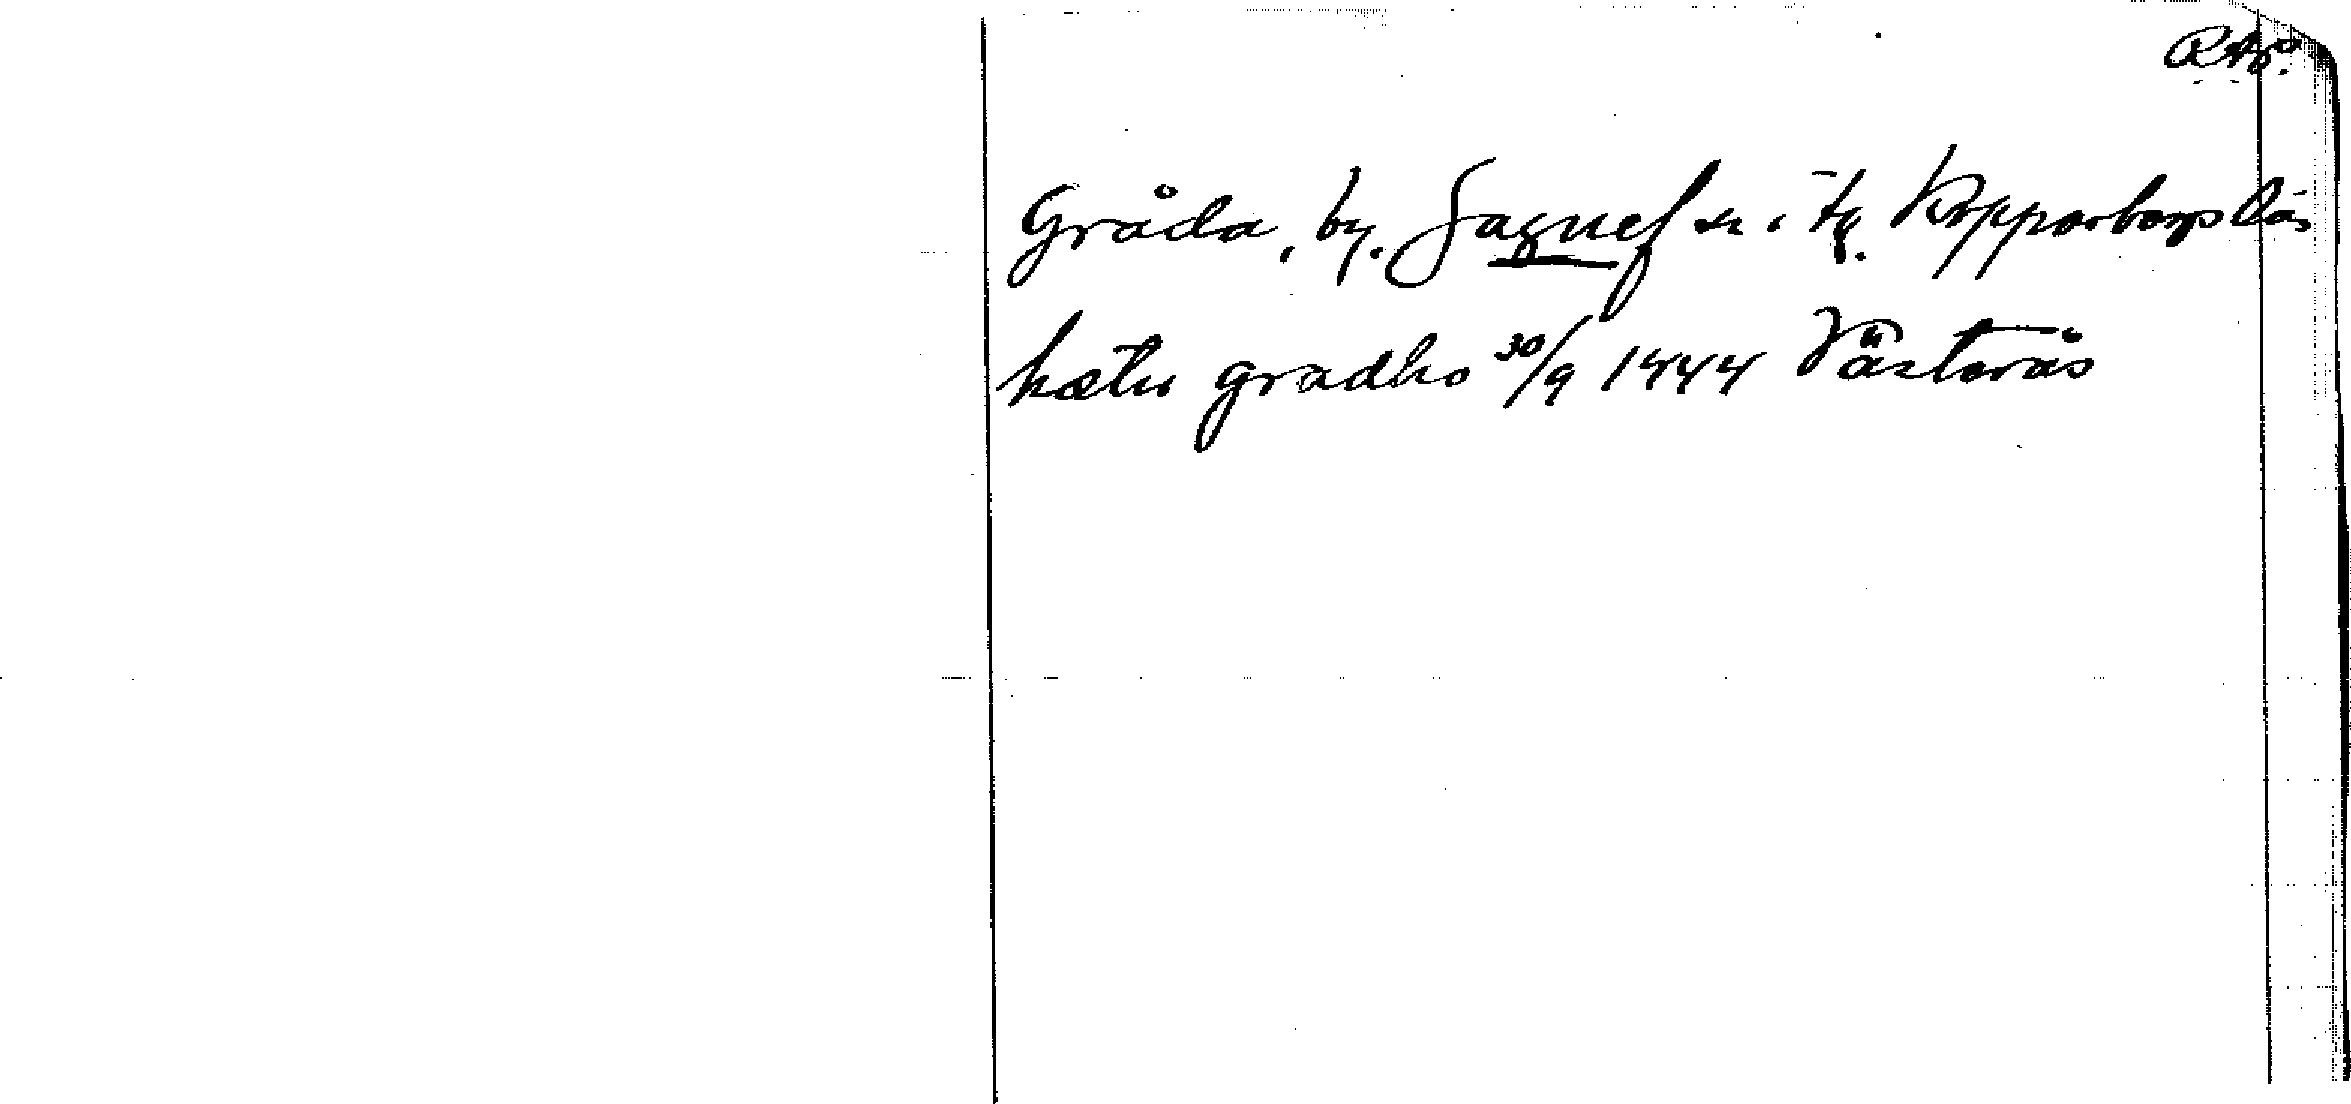 RAp.
Gråda, by. Gagnef sn. o. tg. Kopparbergs län
hætu gradho 30/9 1444 Västerås